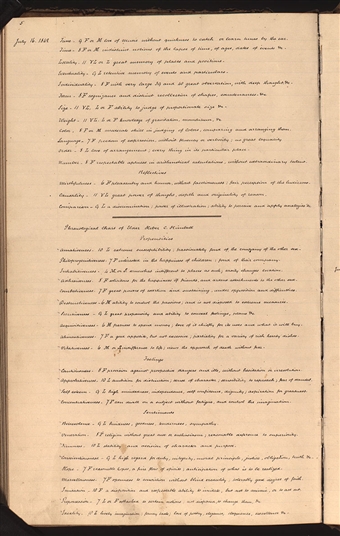 5
July 16, 1842
Tune - 9 F or M love of music without quickness to catch or learn tunes by the ear.
Time - 8 F or M indistinct notions of the lapse of time, of ages, dates of events &c.
Locality - 11 V L or L great memory of places and positions.
Eventuality - L retentive memory of events and particulars.
Individuality - 8 F with very large and great observation, with deep thought &c.
Form - 8 F cognizance and distinct recollection of shapes, countenances, &c.
Size - 11 V L or F ability to judge of proportionate size &c.
Weight - 11 V L or F knowledge of gravitation, momentum, &c
Color - 8 F or M moderate skill in judging of colors, comparing and arranging them.
Language - 7 F freedom of expression, without fluency or verbosity; no great
Order - L love of arrangement; every thing in its particular place.
Number - 8 F respectable aptness in arithmetical calculations, without extraordinary talent
Reflectives
Mirthfulness -
Causality - 11 V L great power of thought, depth and originality of reason.
Comparison - L a discrimination; power of illustration; ability to perceive and apply analogies &c
Phrenological Chart of Elder Heber C. Kimball
Propensities
Amativeness - 10 L extreme susceptibility; passionately fond of the company of the other sex.
Philoprogenitiveness - 7 F interested in the happiness of children; fond of their company.
Inhabitiveness - M or F sometimes indifferent to places as such, easily changes location
Adhesiveness - 8 F solicitous for the happiness of friends, and ardent attachments to the other sex.
Combativeness - 7 F great powers of exertion and sustaining under opposition and difficulties.
Destructiveness - 6 M ability to control the passions, and is not disposed to extreme measures.
Secretiveness - L great propensity and ability to conceal feelings, plans &c
Acquisitiveness -
Alimentiveness - 7 F a good appetite, but not excessive; partiality for a variety of rich hearty dishes.
Vitativeness - 6 M or indifference to life; views the approach of death without fear.
Feelings
Cautiousness - 8 F provision against prospective dangers and ills, without hesitation or irresolution.
Approbativeness - 10 L ambition for distinction; sense of character; sensibility to reproach; fear of scandal.
Self esteem - L high mindedness, independence, self confidence, dignity; aspiration for greatness.
Concentrativeness - 7 F can dwell on a subject without fatigue, and control the imagination.
Sentiments
Benevolence - L kindness, goodness, tenderness, sympathy.
Veneration - 8 F religion without great awe or enthusiasm; reasonable deference to superiority.
Firmness - 10 L stability and decision of character and purpose.
Conscientiousness - L high regard for duty, integrity, moral principle, justice, obligation, truth &c.
Hope - 7 F reasonable hopes, a fine flow of spirits; anticipation of what is to be realized.
Marvellousness - 7 F openness to conviction without blind credulity; tolerably good degree of faith.
Imitation - 10 F a disposition and respectable ability to imitate; but not to mimic, or to act out
Prepossession - 7 L or F attached to certain notions; not disposed to change them, &c
Ideality - 10 L lively imagination; fancy; taste; love of poetry, elegance, eloquence, excellence &c.